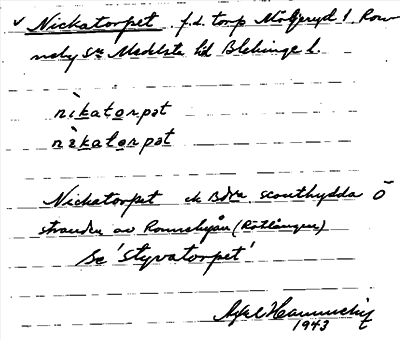 √ Nickatorpet f.d. torp Möljeryd l. Ron-
neby sn Medelsta hd Blekinge l.
nìkatorpət
nìkatorpət
Nickatorpet scouthydda Ö
stranden av Ronnebyån (Rötlången)
Se 'Styvatorpet'
Axel
1943